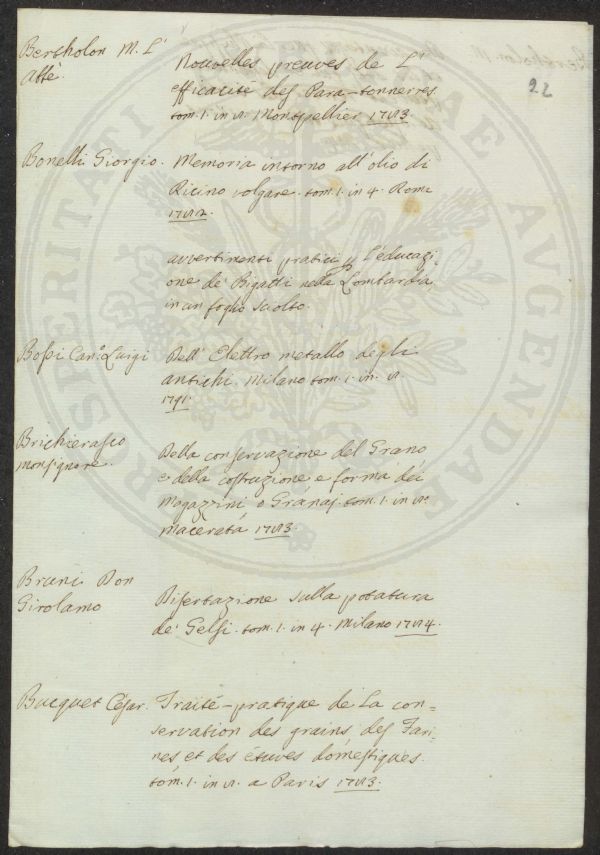 22
Bertholon M. L'
Abbé.
Nouvelles preuves de L'
efficacité des Para-tonnerres
tom. 1. in 8. Montpellier 1783.
Bonelli Giorgio.
Memoria intorno all'olio di
Ricino volgare. tom. 1. in 4. Roma
1782.
avvertimenti pratici p. L'educazi,
one de' Bigatti nella Lombardia
in un foglio sciolto.
Bossi Can.º Luigi
Dell' Elettro metallo degli
antichi. Milano tom. 1. in. 8.
1791.
Brichierasco
monsignore.
Della conservazione del Grano
e della costruzione e forma dei
Magazzini o Granaj. tom. 1. in 8.
macerata 1783.
Bruni Don
Girolamo
Disertazione sulla potatura
de' Gelsi. tom. 1. in 4. Milano 1784.
Bucquet César.
Traité-pratique de La con=
servation des grains des Fari,
nes et des étuves domestiques.
tom. 1. in 8. a Paris 1783.
STERITATI
AUGENDAE